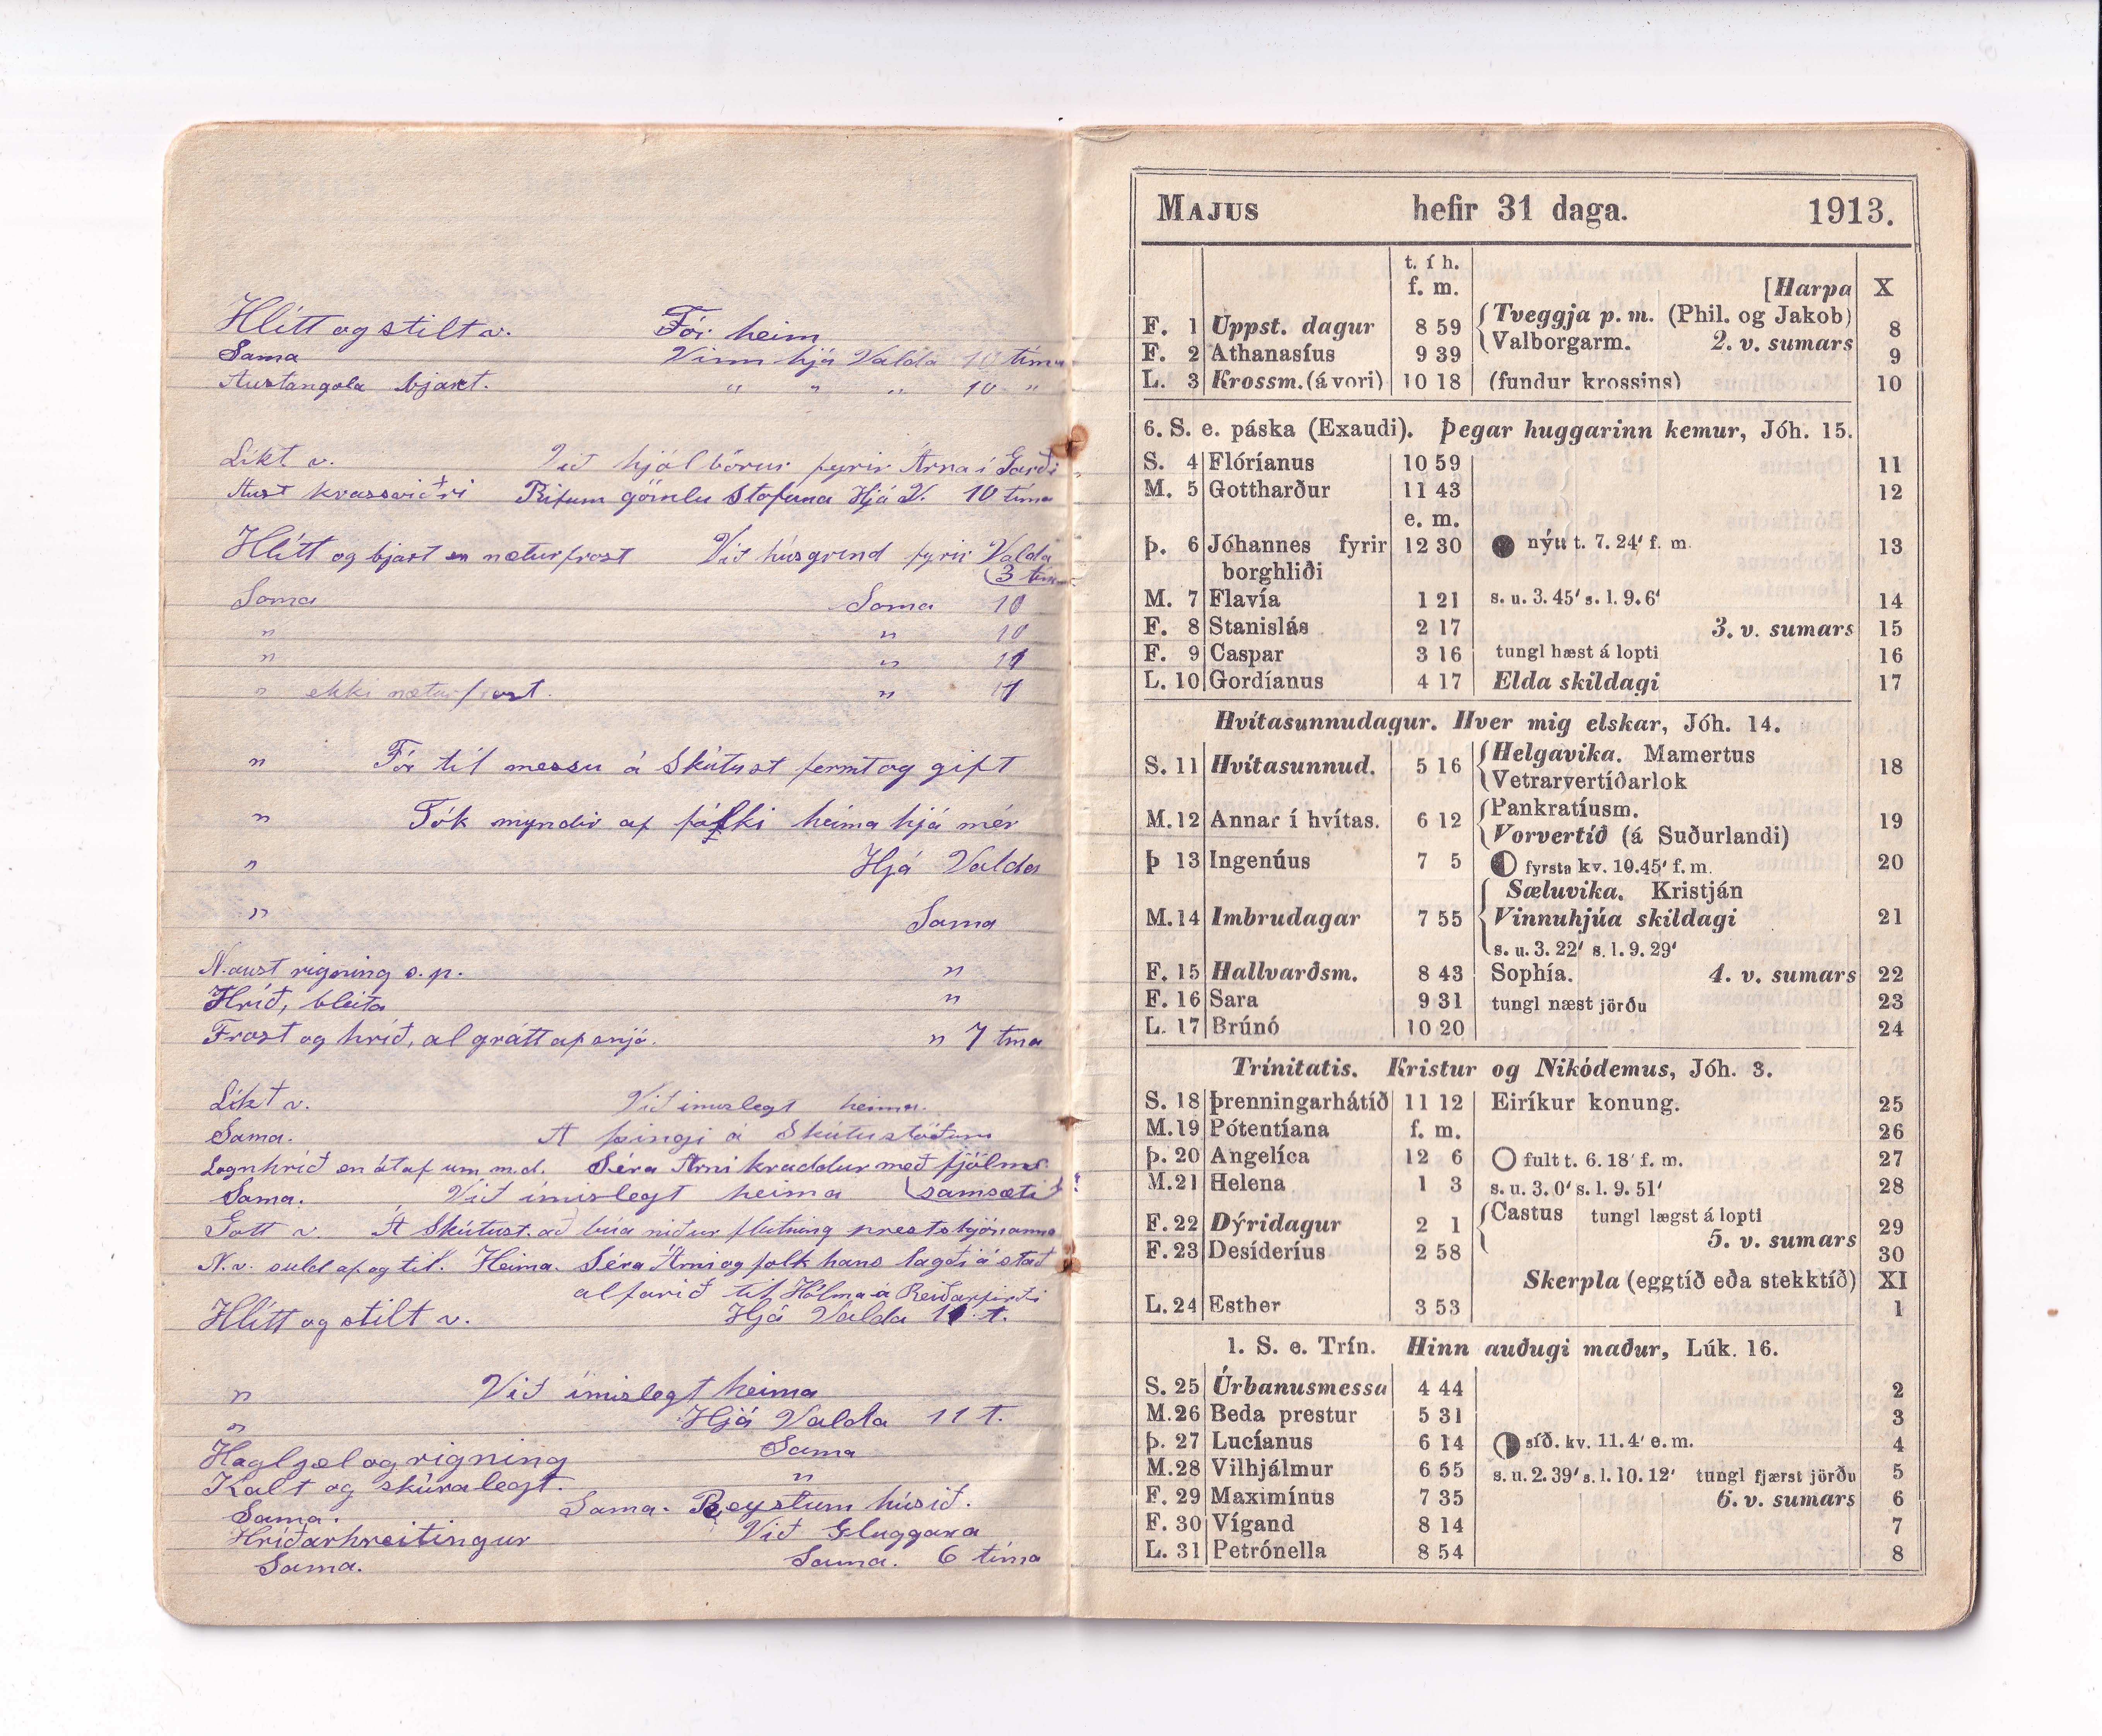 Hlítt og stilt v. Fór heim
Sama Vinn hjá Valda 10 tíma
Austangola bjart. " " " 10 "
Líkt v. Við hjólbörur fyrir Árna í Garði
Aust krassviðri Rifum gömlu stofuna Hjá V. 10 tíma
Hlítt og bjart en næturfrost Við húsgrind fyrir Valda
3 tím
Sama Sama 10
" " 10
" " 11
" ekki næturfrost. " 11
" Fór til messu á Skútust fermt og gift
" Tók myndir af fólki heima hjá mér
" Hjá Valda
" Sama
N.aust rigning s.p. "
Hríð, bleita "
Frost og hríð, al grátt af snjó. " 7 tma
Líkt v. Við imislegt heima.
Sama. Á þingi á Skútustöðum
Lognhríð en átaf um m.d. Séra Árni kvaddur með fjölmc
Sama. Við ímislegt heima samsæti
Gott v. Á Skútust. að búa niður flutning prestshjónanna
N.v. suld af og til. Heima. Séra Árni og folk hans lagði á stað
alfarið til Hólma á Reiðarfirði
Hlítt og stilt v. Hjá Valda 11 t.
" Við ímislegt heima
" Hjá Valda 11 t.
Hagljel og rigning Sama
Kalt og skúralegt. "
Sama. Sama. Reystum húsið.
Hríðarhreitingur Við Gluggana
Sama. Sama. 6 tíma
MAJUS hefir 31 daga. 1913.
t. í h.
f. m. [Harpa X
F. 1 Uppst. dagur 8 59 Tveggja p. m. (Phil. og Jakob) 8
Valborgarm. 2. v. sumars
F. 2 Athanasíus 9 39 9
L. 3 Krossm. (á vori) 10 18 (fundur krossins) 10
6. S. e. páska (Exaudi). Þegar huggarinn kemur, Jóh. 15.
S. 4 Flóríanus 10 59 11
M. 5 Gottharður 11 43 12
e. m.
Þ. 6 Jóhannes fyrir 12 30 nýtt t. 7. 24' f. m. 13
borghliði
M. 7 Flavía 1 21 s. u. 3. 45' s. l. 9. 6' 14
F. 8 Stanislás 2 17 3. v. sumars 15
F. 9 Caspar 3 16 tungl hæst á lopti 16
L. 10 Gordíanus 4 17 Elda skildagi 17
Hvítasunnudagur. Hver mig elskar, Jóh. 14.
S. 11 Hvítasunnud. 5 16 Helgavika. Mamertus 18
Vetrarvertíðarlok
M. 12 Annar í hvítas. 6 12 Pankratíusm. 19
Vorvertíð (á Suðurlandi)
Þ 13 Ingenúus 7 5 fyrsta kv. 10. 45' f. m. 20
Sæluvika. Kristján
M. 14 Imbrudagar 7 55 Vinnuhjúa skildagi 21
s. u. 3. 22' s. l. 9. 29'
F. 15 Hallvarðsm. 8 43 Sophía. 4. v. sumars 22
F. 16 Sara 9 31 tungl næst jörðu 23
L. 17 Brúnó 10 20 24
Trínitatis. Kristur og Nikódemus, Jóh. 3.
S. 18 Þrenningarhátíð 11 12 Eiríkur konung. 25
M. 19 Pótentíana f. m. 26
Þ. 20 Angelíca 12 6 fult t. 6. 18' f. m. 27
M. 21 Helena 1 3 s. u. 3. 0' s. l. 9. 51' 28
F. 22 Dýridagur 2 1 Castus tungl lægst á lopti 29
5. v. sumars
F. 23 Desíderíus 2 58 30
Skerpla (eggtíð eða stekktíð) XI
L. 24 Esther 3 53 1
1. S. e. Trín. Hinn auðugi maður, Lúk. 16.
S. 25 Úrbanusmessa 4 44 2
M. 26 Beda prestur 5 31 3
Þ. 27 Lucíanus 6 14 síð. kv. 11. 4' e. m. 4
M. 28 Vilhjálmur 6 55 s. u. 2. 39' s. l. 10. 12' tungl fjærst jörðu 5
F. 29 Maximínus 7 35 6. v. sumars 6
F. 30 Vígand 8 14 7
L. 31 Petrónella 8 54 8